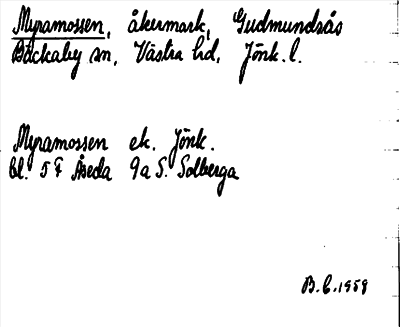 Myramossen, åkermark, Gudmundsås
Bäckaby sn, Västra hd, Jönk. l.
Myramossen ek. Jönk.
bl. 5 F Åseda 9a S. Solberga
B. C. 1959